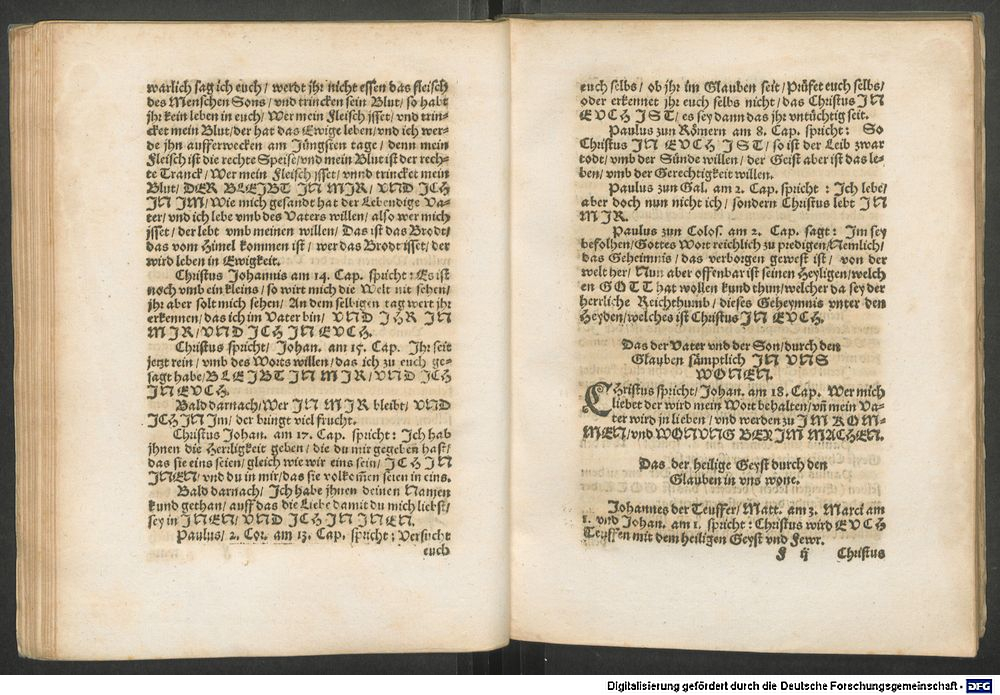 warlich sag ich euch / werdt jhr nicht essen das fleisch
des Menschen Sons / vnd trincken sein Blut / so habt
jhr kein leben in euch / Wer mein Fleisch jsset / vnd trin-
cket mein Blut / der hat das Ewige leben / vnd ich wer-
de jhn aufferwecken am Jüngsten tage / denn mein
Fleisch ist die rechte Speise / vnd mein Blut ist der rech-
te Tranck / Wer mein Fleisch jsset / vnnd trincket mein
Blut / DER BLEIBT IN MIR / VND ICH
IN JM / Wie mich gesandt hat der Lebendige Va-
ter / vnd ich lebe vmb des Vaters willen / also wer mich
jsset / der lebt vmb meinen willen / Das ist das Brodt /
das vom Himel kommen ist / wer das Brodt jsset / der
wird leben in Ewigkeit.
Christus Johannis am 14. Cap. spricht : Es ist
noch vmb ein kleins / so wirt mich die Welt nit sehen /
jhr aber solt mich sehen / An dem selbigen tag wert jhr
erkennen / das ich im Vater bin / VND IHR IN
MIR / VND ICH IN EVCH.
Christus spricht / Johan. am 15. Cap. Ihr seit
jetzt rein / vmb des Worts willen / das ich zu euch ge-
sagt habe / BLEIBT IN MIR / VND ICH
IN EVCH.
Bald darnach / Wer IN MIR bleibt / VND
ICH IN Im / der bringt viel frucht.
Christus Johan. am 17. Cap. spricht : Ich hab
jhnen die Herrligkeit geben / die du mir gegeben hast /
das sie eins seien / gleich wie wir eins sein / ICH IN
INEN / vnd du in mir / das sie volkom̃en seien in eins.
Bald darnach / Ich habe jhnen deinen Namen
kund gethan / auff das die Liebe damit du mich liebst /
sey in INEN / VND ICH IN INEN.
Paulus / 2. Cor. am 13. Cap. spricht : Versucht
euch
euch selbs / ob jhr im Glauben seit / Prüfet euch selbs /
oder erkennet jhr euch selbs nicht / das Christus IN
EVCH IST / es sey dann das jhr vntüchtig seit.
Paulus zun Römern am 8. Cap. spricht : So
Christus IN EVCH IST / so ist der Leib zwar
todt / vmb der Sünde willen / der Geist aber ist das le-
ben / vmb der Gerechtigkeit willen.
Paulus zun Gal. am 2. Cap. spricht : Ich lebe /
aber doch nun nicht ich / sondern Christus lebt IN
MIR.
Paulus zun Colos. am 2. Cap. sagt : Im sey
befolhen / Gottes Wort reichlich zu predigen / Nemlich /
das Geheimnis / das verborgen gewest ist / von der
welt her / Nun aber offenbar ist seinen Heyligen / welch
en GOTT hat wollen kund thun / welcher da sey der
herrliche Reichthumb / dieses Geheymnis vnter den
Heyden / welches ist Christus IN EVCH.
Das der Vater vnd der Son / durch den
Glauben sämptlich IN VNS
WONEN.
CHristus spricht / Johan. am 18. Cap. Wer mich
liebet der wird mein Wort behalten / vñ mein Va-
ter wird in lieben / vnd werden zu IM KOM-
MEN / vnd WONVNG BEY IM MACHEN.
Das der heilige Geyst durch den
Glauben in vns wone.
Johannes der Teuffer / Matt. am 3. Marci am
1. vnd Johan. am 1. spricht : Christus wird EVCH
Teuffen mit dem heiligen Geyst vnd Fewr.
F ij Christus
Digitalisierung gefördert durch die Deutsche Forschungsgemeinschaft - DFG